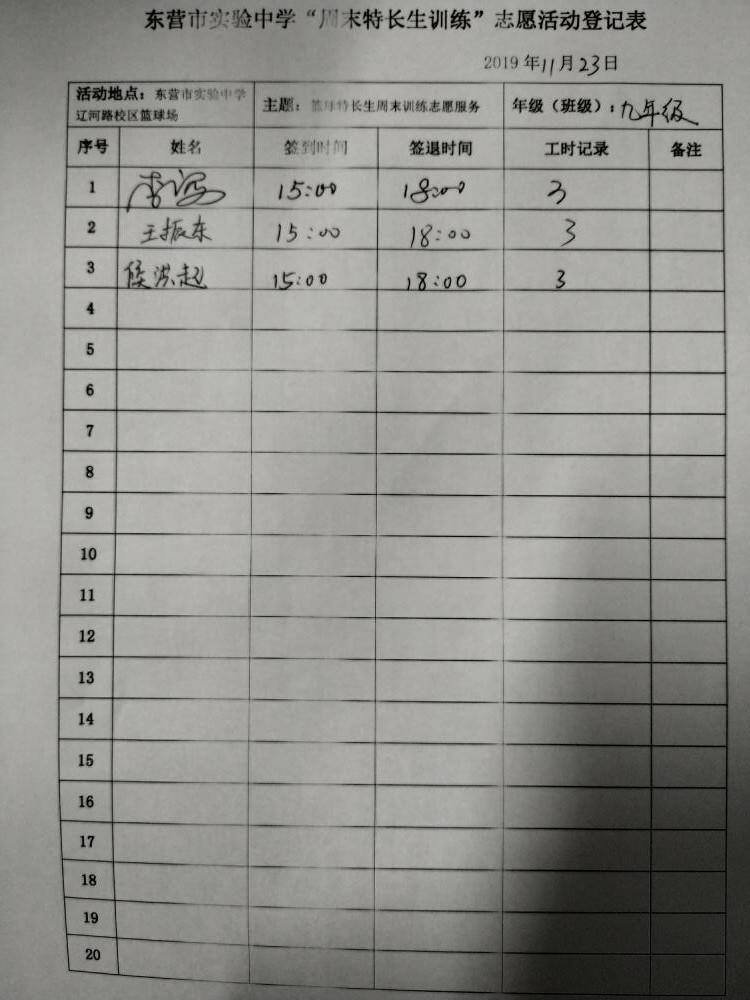 东营市实验中学“周末特长生训练”志愿活动登记表
2019年11月23日
活动地点：东营市实验中学
辽河路校区篮球场
主题：篮球特长生周末训练志愿服务
年级（班级）：九年级
序号 姓名 签到时间 签退时间 工时记录 备注
1 李 15:00 18:00 3
2 王振东 15:00 18:00 3
3 侯洪起 15:00 18:00 3
4
5
6
7
8
9
10
11
12
13
14
15
16
17
18
19
20